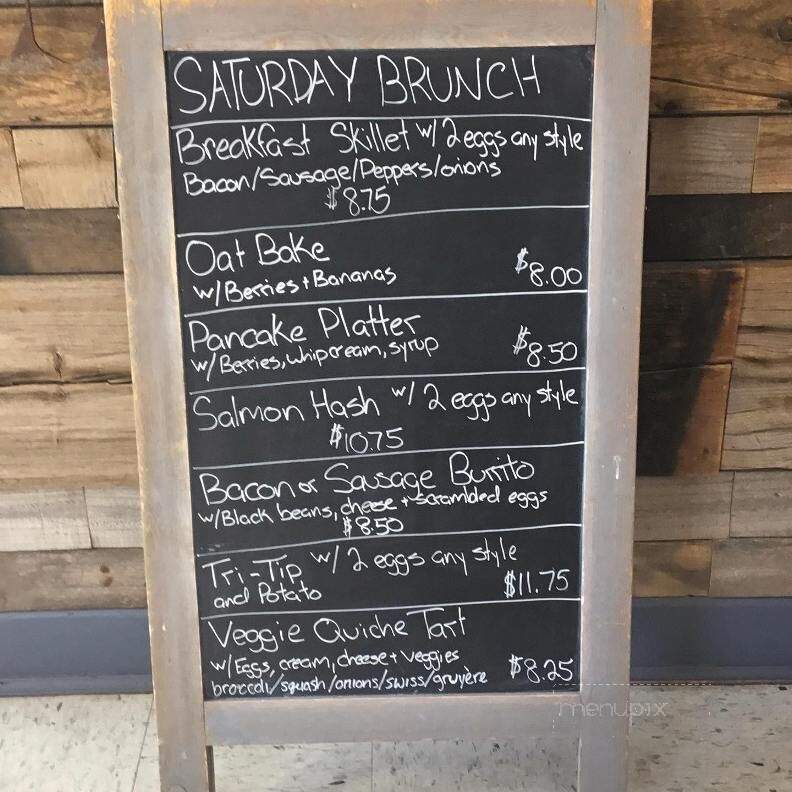 SATURDAY BRUNCH
Breakfast Skillet w/ 2 eggs any style
Bacon/Sausage/Peppers/onions
$8.75
Oat Bake
w/Berries + Bananas $8.00
Pancake Platter
w/Berries, whipcream, syrup $8.50
Salmon Hash w/ 2 eggs any style
$10.75
Bacon or Sausage Burrito
w/Black beans, cheese + scrambled eggs
$8.50
Tri-Tip w/ 2 eggs any style
and Potato $11.75
Veggie Quiche Tart
w/Eggs, cream, cheese + veggies $8.25
broccoli/squash/onions/swiss/gruyère
menupix